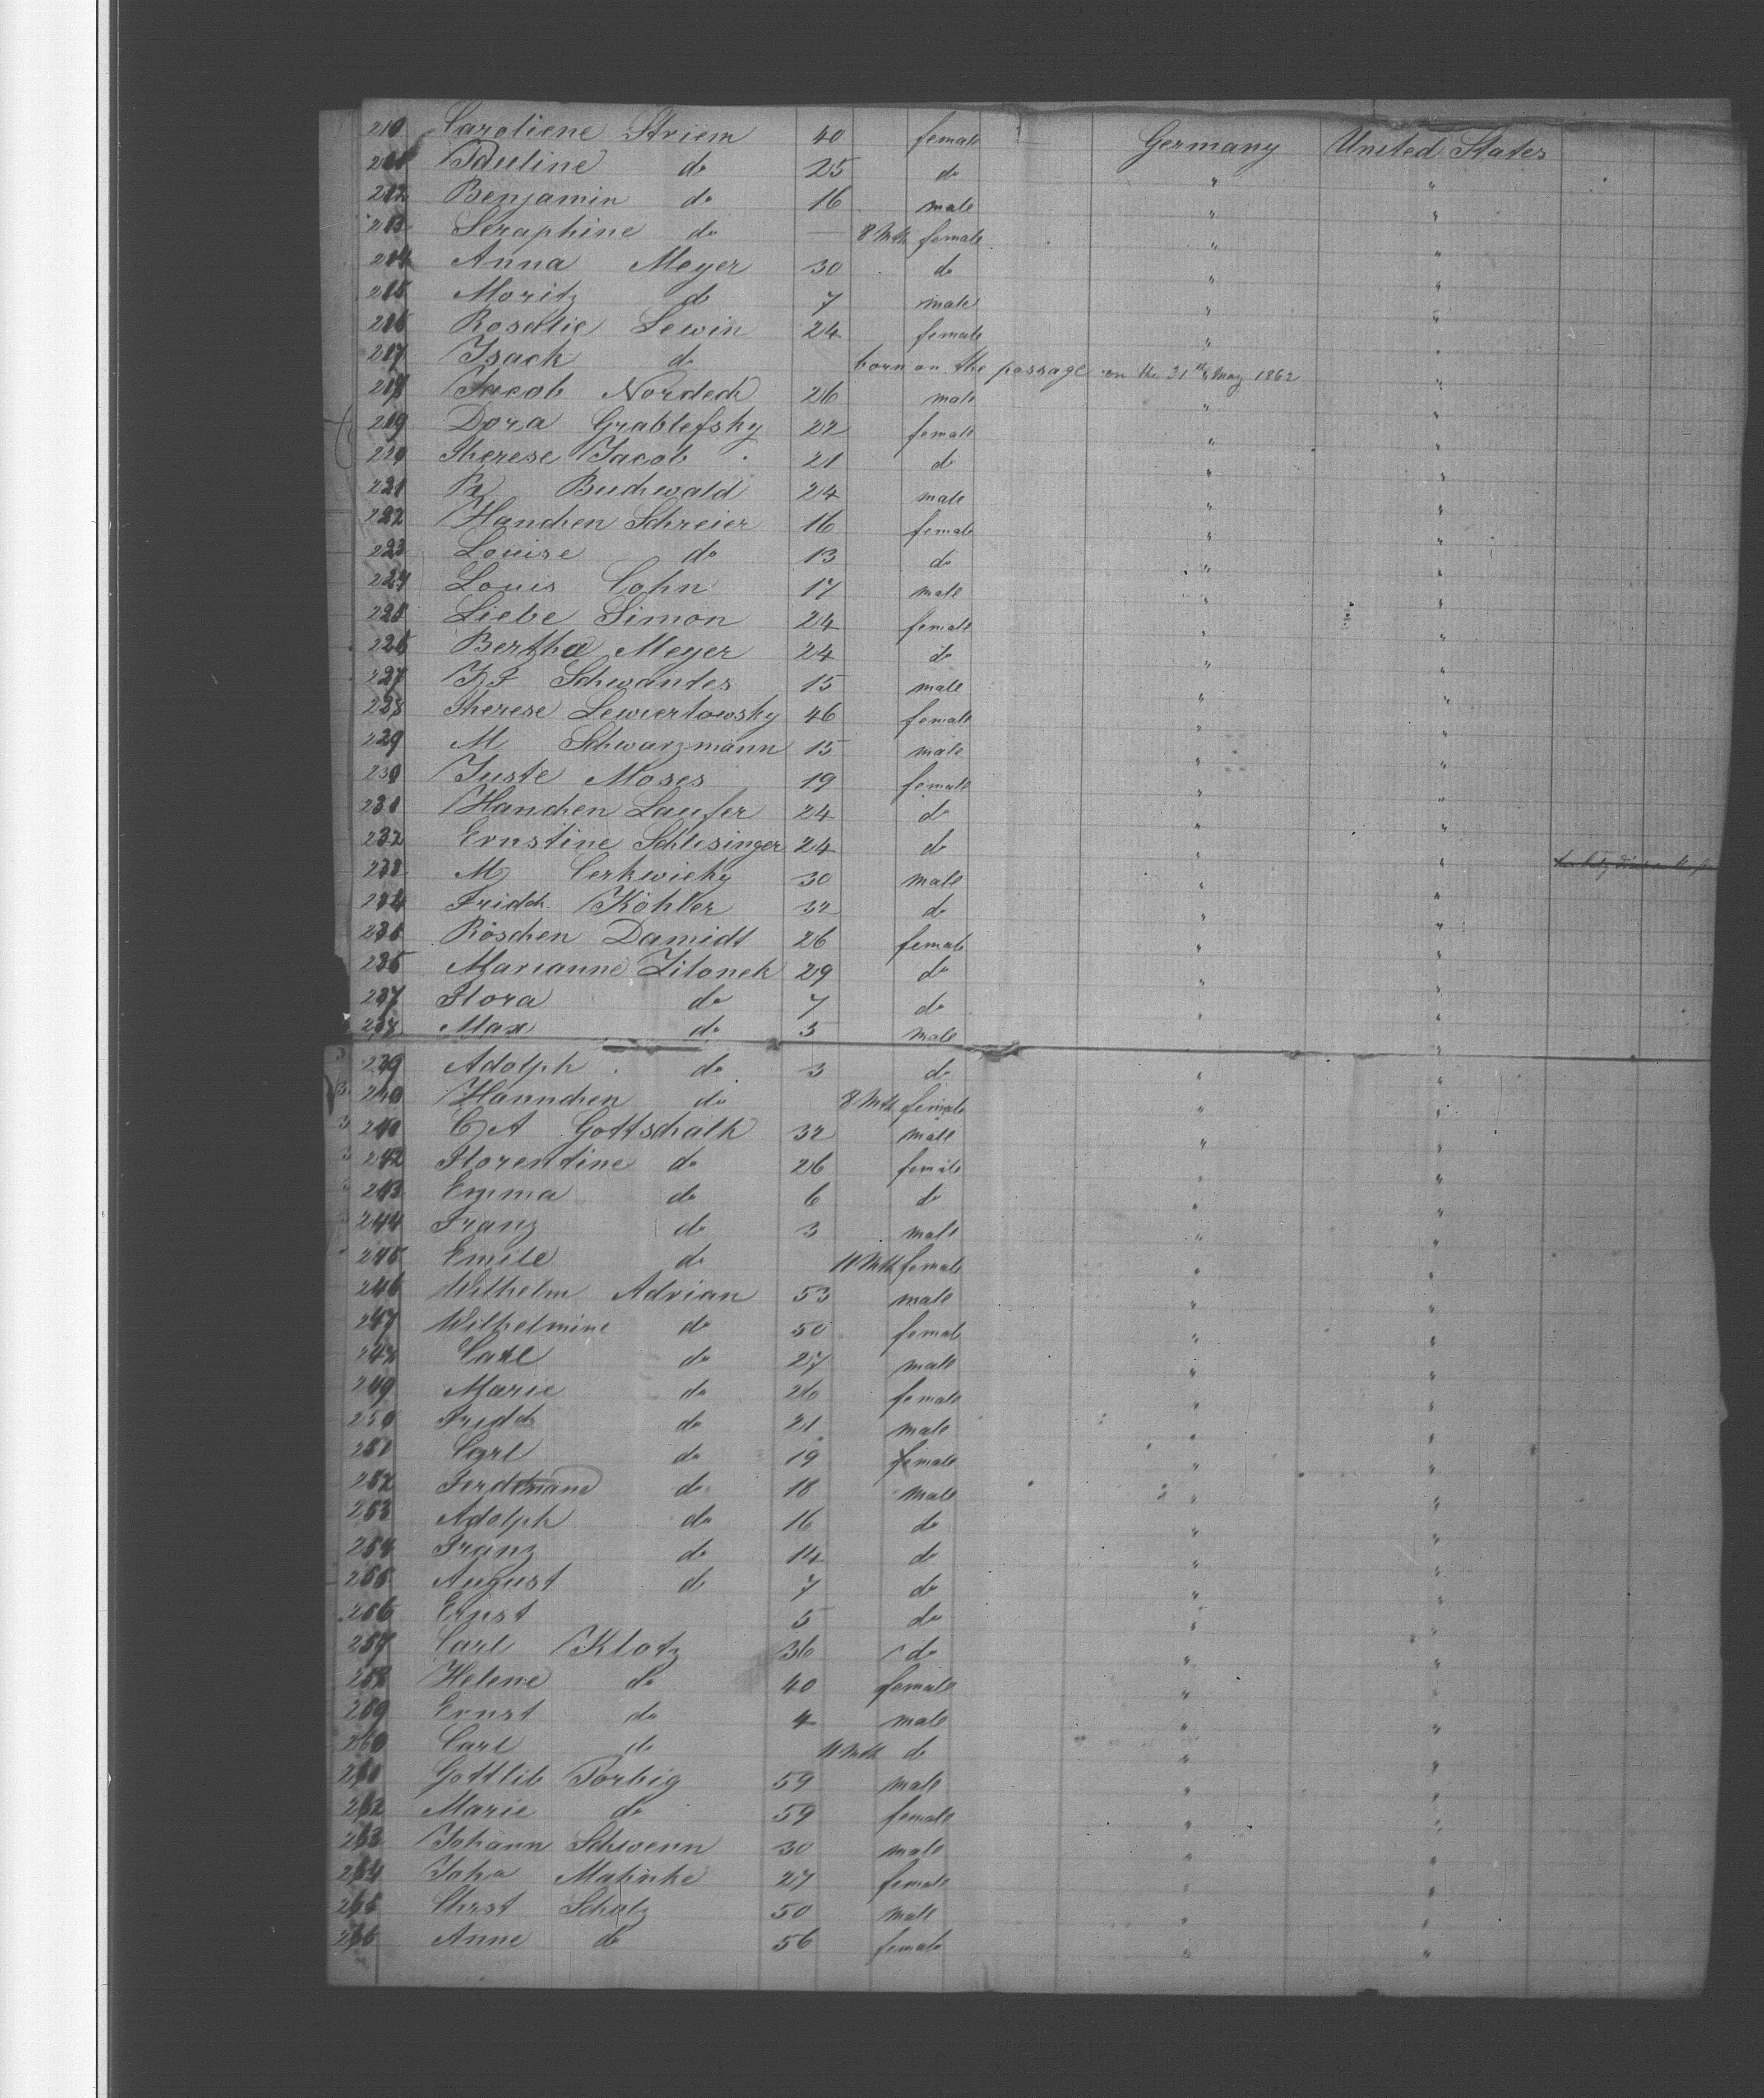 210 Caroliene Striem 40 female Germany United States
211 Pauline do 25 do " "
212 Benjamin do 16 male " "
213 Seraphine do — 8 Mth female " "
214 Anna Meyer 30 do " "
215 Moritz do 7 male " "
216 Rosalie Lewin 24 female " "
217 Isack do born on the passage on the 31th May 1862 "
218 Jacob Nordech 26 male " "
219 Dora Grablefsky 22 female " "
220 Therese Jacob 21 do " "
221 Buchwald 24 male " "
222 Hanchen Schreier 16 female " "
223 Louise do 13 do " "
224 Louis Cohn 17 male " "
225 Liebe Simon 24 female " "
226 Bertha Meyer 24 do " "
227 Schwantes 15 male " "
228 Therese Lewiertowsky 46 female " "
229 M Schwarzmann 15 male " "
230 Juste Moses 19 female " "
231 Hanchen Laufer 24 do " "
232 Ernstine Schlesinger 24 do " "
233 M Cerkwicky 30 male " "
234 Fridch Köhler 32 do " "
235 Röschen Damidt 26 female " "
236 Marianne Zitonek 29 do " "
237 Flora do 7 do " "
238 Max do 5 male "
239 Adolph do 3 do " "
240 Hannchen do 8 Mth female " "
241 C A Gottschalk 32 male " "
242 Florentine do 26 female " "
243 Emma do 6 do " "
244 Franz do 3 male " "
245 Emile do 11 Mth female " "
246 Wilhelm Adrian 53 male " "
247 Wilhelmine do 50 female " "
248 Carl do 27 male " "
249 Marie do 26 female " "
250 Fridch do 21 male " "
251 Carl do 19 male " "
252 Ferdinand do 18 male " "
253 Adolph do 16 do " "
254 Franz do 14 do " "
255 August do 7 do " "
256 Ernst 5 do " "
257 Carl Klotz 36 do " "
258 Helene do 40 female " "
259 Ernst do 4 male " "
260 Carl do 11 Mth do " "
261 Gottlib Torbig 59 male " "
262 Marie do 59 female " "
263 Johann Schwenn 30 male " "
264 Joha Mahnke 27 female " "
265 Chrst Scholz 50 male " "
266 Anne do 56 female " "